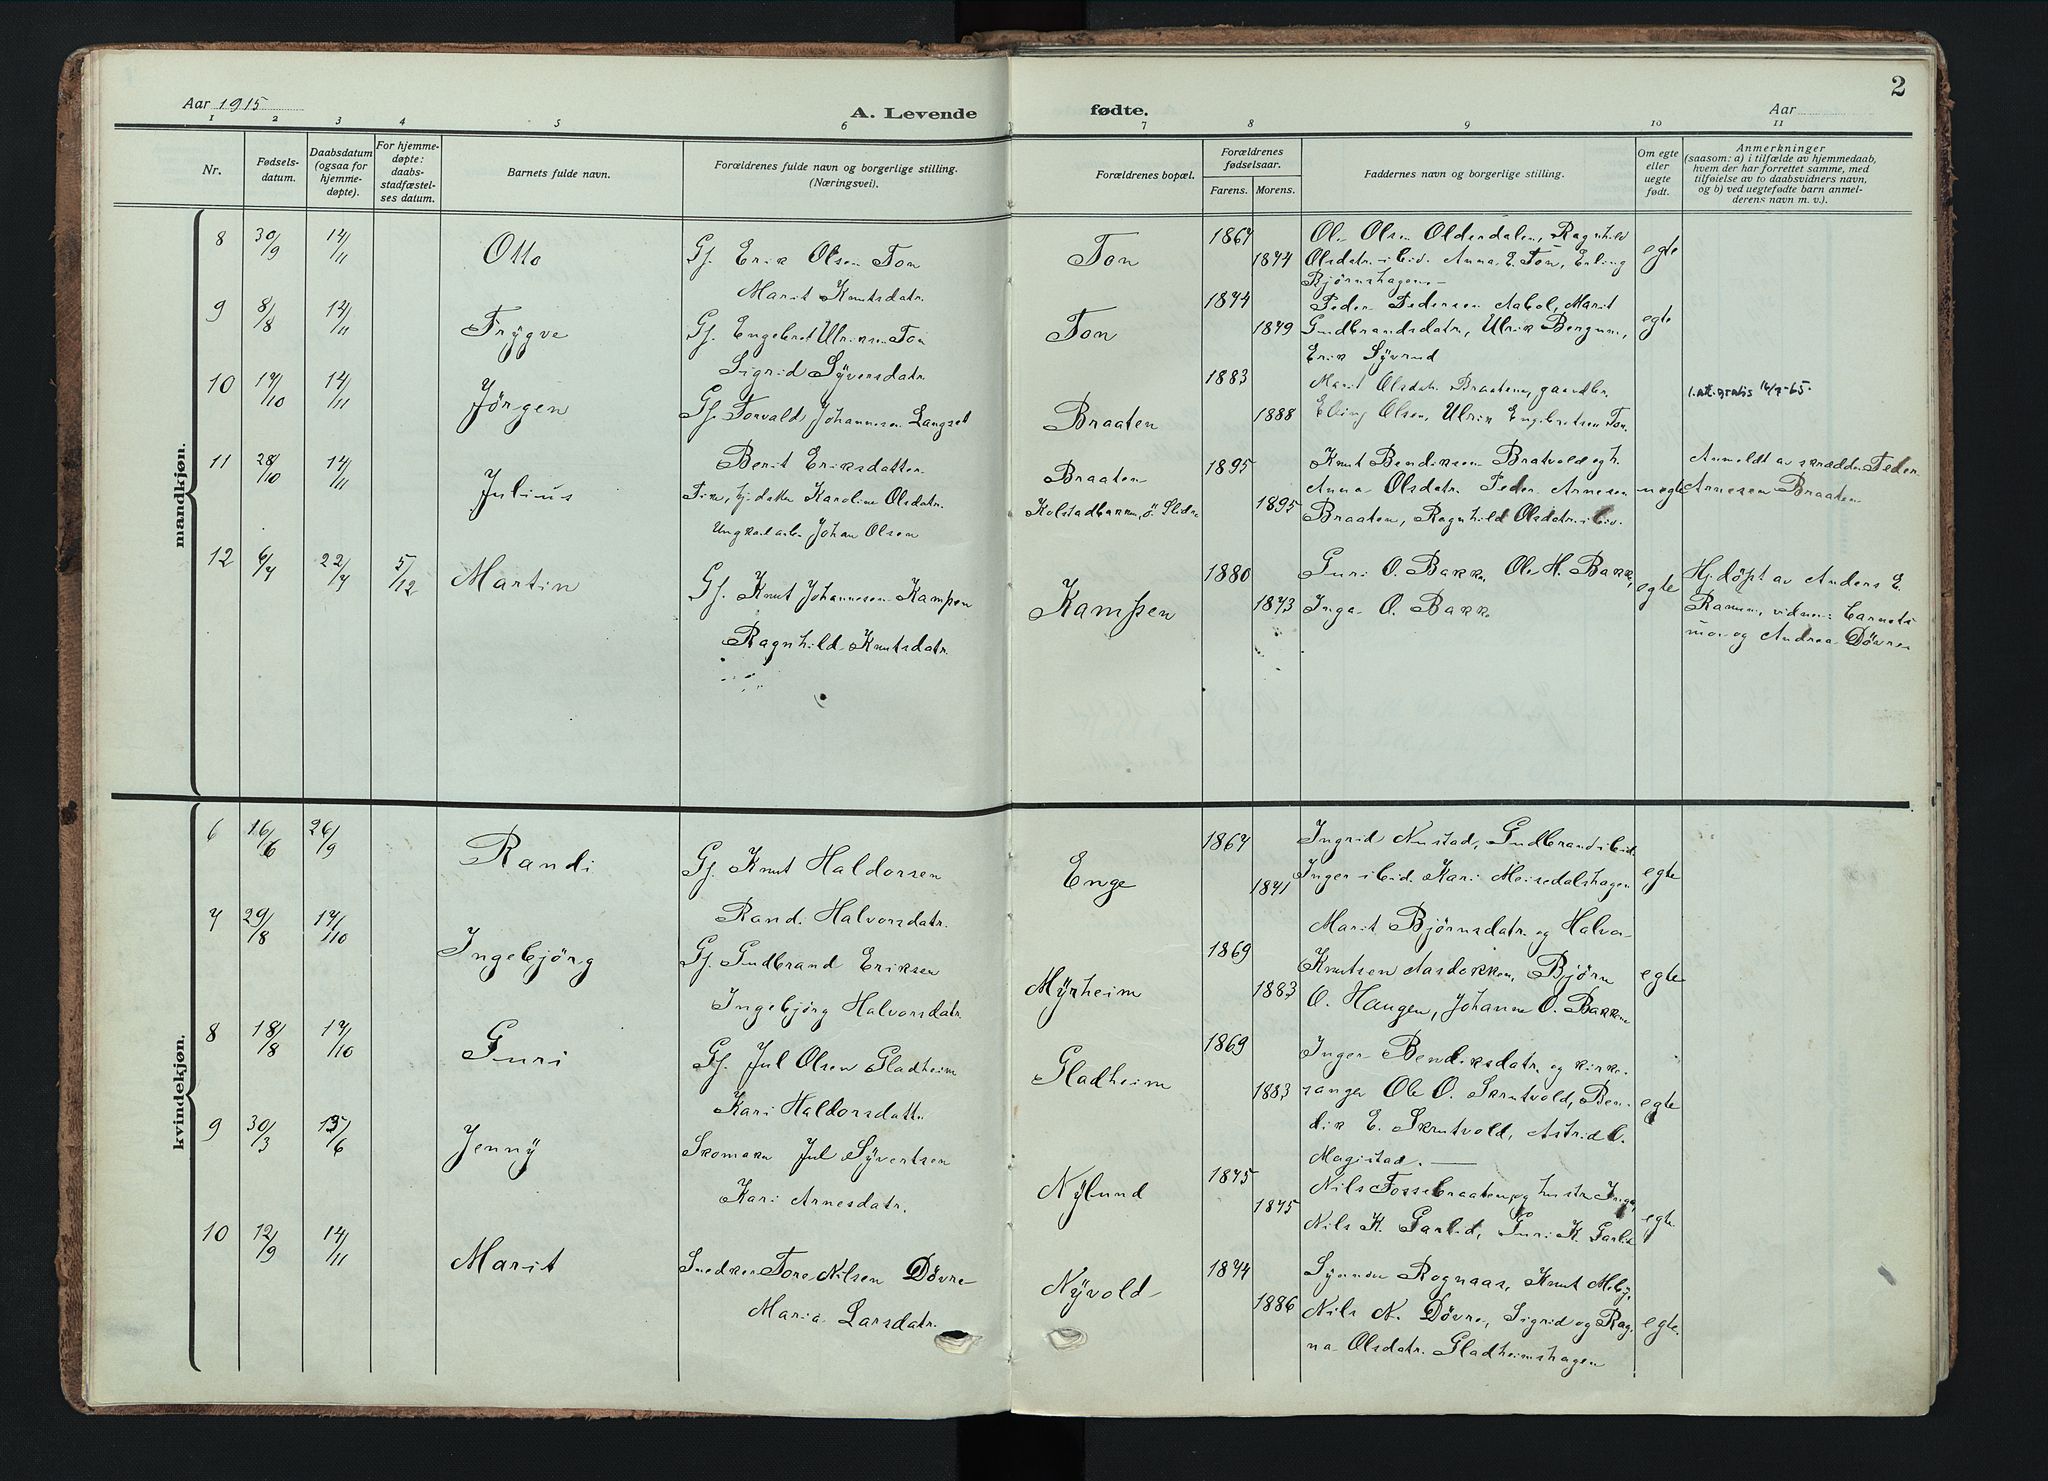 Aar 1915
A. Levende
fødte.
2
Aar
1 2 3 4 5 6 7 8 9 10 11
Nr.
Fødsels-
datum.
Daabsdatum
(ogsaa for
hjemme-
døpte).
For hjemme-
døpte:
daabs-
stadfæstel-
ses datum.
Barnets fulde navn.
Forældrenes fulde navn og borgerlige stilling.
(Næringsvei).
Forældrenes bopæl.
Forældrenes
fødselsaar.
Farens. Morens.
Faddernes navn og borgerlige stilling.
Om egte
eller
uegte
født.
Anmerkninger
(saasom: a) i tilfælde av hjemmedaab,
hvem der har forrettet samme, med
tilføielse av to daabsvidners navn,
og b) ved uegtefødte barn anmel-
derens navn m. v.).
mandkjøn.
8 30/9 14/11 Otto
Gj. Erik Olsen Ton
Marit Knutsdatr.
Ton
1867
1877
Ole Olsen Olderdalen, Ragnhild
Olsdatr. ibid. Anna E. Ton, Erling
Bjørnshagen
egte
9 8/8 14/11 Trygve
Gj. Engebret Ulriksen Ton
Sigrid Syversdatr.
Ton
1874
1879
Peder Pedersen Aabol, Marit
Gudbrandsdatr, Ulrik Bergum,
Erik Syvrud
egte
10 17/10 14/11 Jörgen
Gj. Torvald Johannesen Langset
Berit Eriksdatter
Braaten
1883
1888
Marit Olsdatr. Braaten, gaardbr.
Olsen, Ulrik Engebretsen Ton.
1.at.gratis 16/9-65.
11 28/10 14/11 Julius
Karoline Olsdatr.
Ungkarl arb. Johan Olsen
Braaten
Kolstadbakken, ö. Slidre
1895
1895
Knut Bendiksen Bratvold og h.
Anna Olsdatr. Peder Arnesen
Braaten, Ragnhild Olsdatr. ibid.
uegte
Anmeldt av skrædder Peder
Arnesen Braaten
12 6/7 22/7 5/12 Martin
Gj. Knut Johannesen Kampen
Ragnhild Knutsdatr.
Kampen
1880
1873
Guri O. Bakke, Ole H. Bakke,
Inga O. Bakke
egte
Hj.döpt av Anders E.
Ramm, vidner: barnets
mor og Andrea Dövre
kvindekjøn.
6 16/6 26/9 Randi
Gj. Knut Haldorsen
Randi Halvorsdatr.
Enge
1867
1871
Ingrid Nustad, Gudbrand ibid.
Inger ibid. Kari Meisedalshagen
egte
7 29/8 17/10 Ingebjörg
Gj. Gudbrand Eriksen
Ingebjörg Halvorsdatr.
Myrheim
1869
1883
Marit Bjørnsdatr. og Halvor
Knutsen Aasdokken, Bjørn
O. Haugen, Johanne O. Bakken
egte
8 18/8 17/10 Guri
Gj. Jul Olsen Gladheim
Kari Haldorsdatter
Gladheim
1869
1883
Inger Bendiksdatr. og kirke-
sanger Ole O. Skrutvold, Ben-
dik E. Skrutvold, Astrid
Magistad.
egte
9 30/3 13/6 Jenny
Skomaker Jul Syvertsen
Kari Arnesdatr.
Nylund
1875
1875
Nils Fossebraaten og hustr. Inga,
Nils K. Garlid, Guri K. Garlid
egte
10 12/9 14/11 Marit
Snedker Tore Nilsen Dövre
Maria Larsdatr.
Nyvold
1874
1886
Synnöve Rognaas, Knut
Nils N. Dövre, Sigrid og Rag-
na Olsdatr. Gladheimshagen
egte.